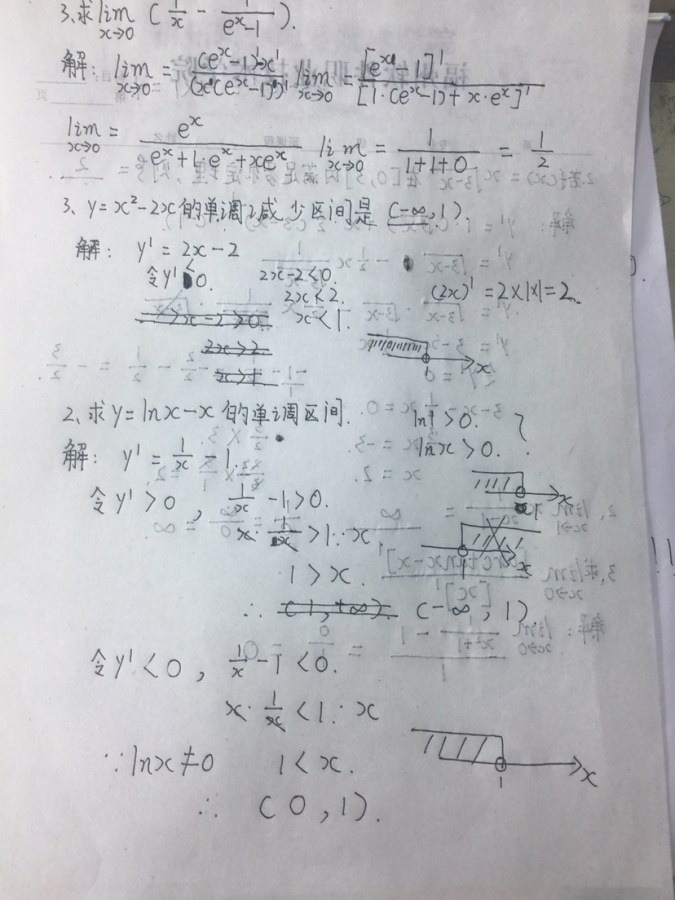 3.求lim x→0 (1/x - 1/(e^x-1)).
解: lim x→0 = (e^x-1-x)'/(x(e^x-1))' lim x→0 = [e^x-1]'/[1·(e^x-1)+x·e^x]'
lim x→0 = e^x/(e^x+1·e^x+xe^x) lim x→0 = 1/(1+1+0) = 1/2
3. y=x²-2x的单调减少区间是(-∞,1).
解: y'=2x-2
令y'<0. 2x-2<0.
2x<2. (2x)'=2×1×1=2.
2x-2>0. x<1.
2x>2
x>1
1 x
2.求y=lnx-x的单调区间. ln1>0.
解: y'=1/x-1. lnx>0.
令y'>0, 1/x-1>0.
x·1/x>1·x
1>x.
∴(1,+∞). (-∞,1)
令y'<0, 1/x-1<0.
x·1/x<1·x
∵lnx≠0 1<x. 1 x
∴(0,1).